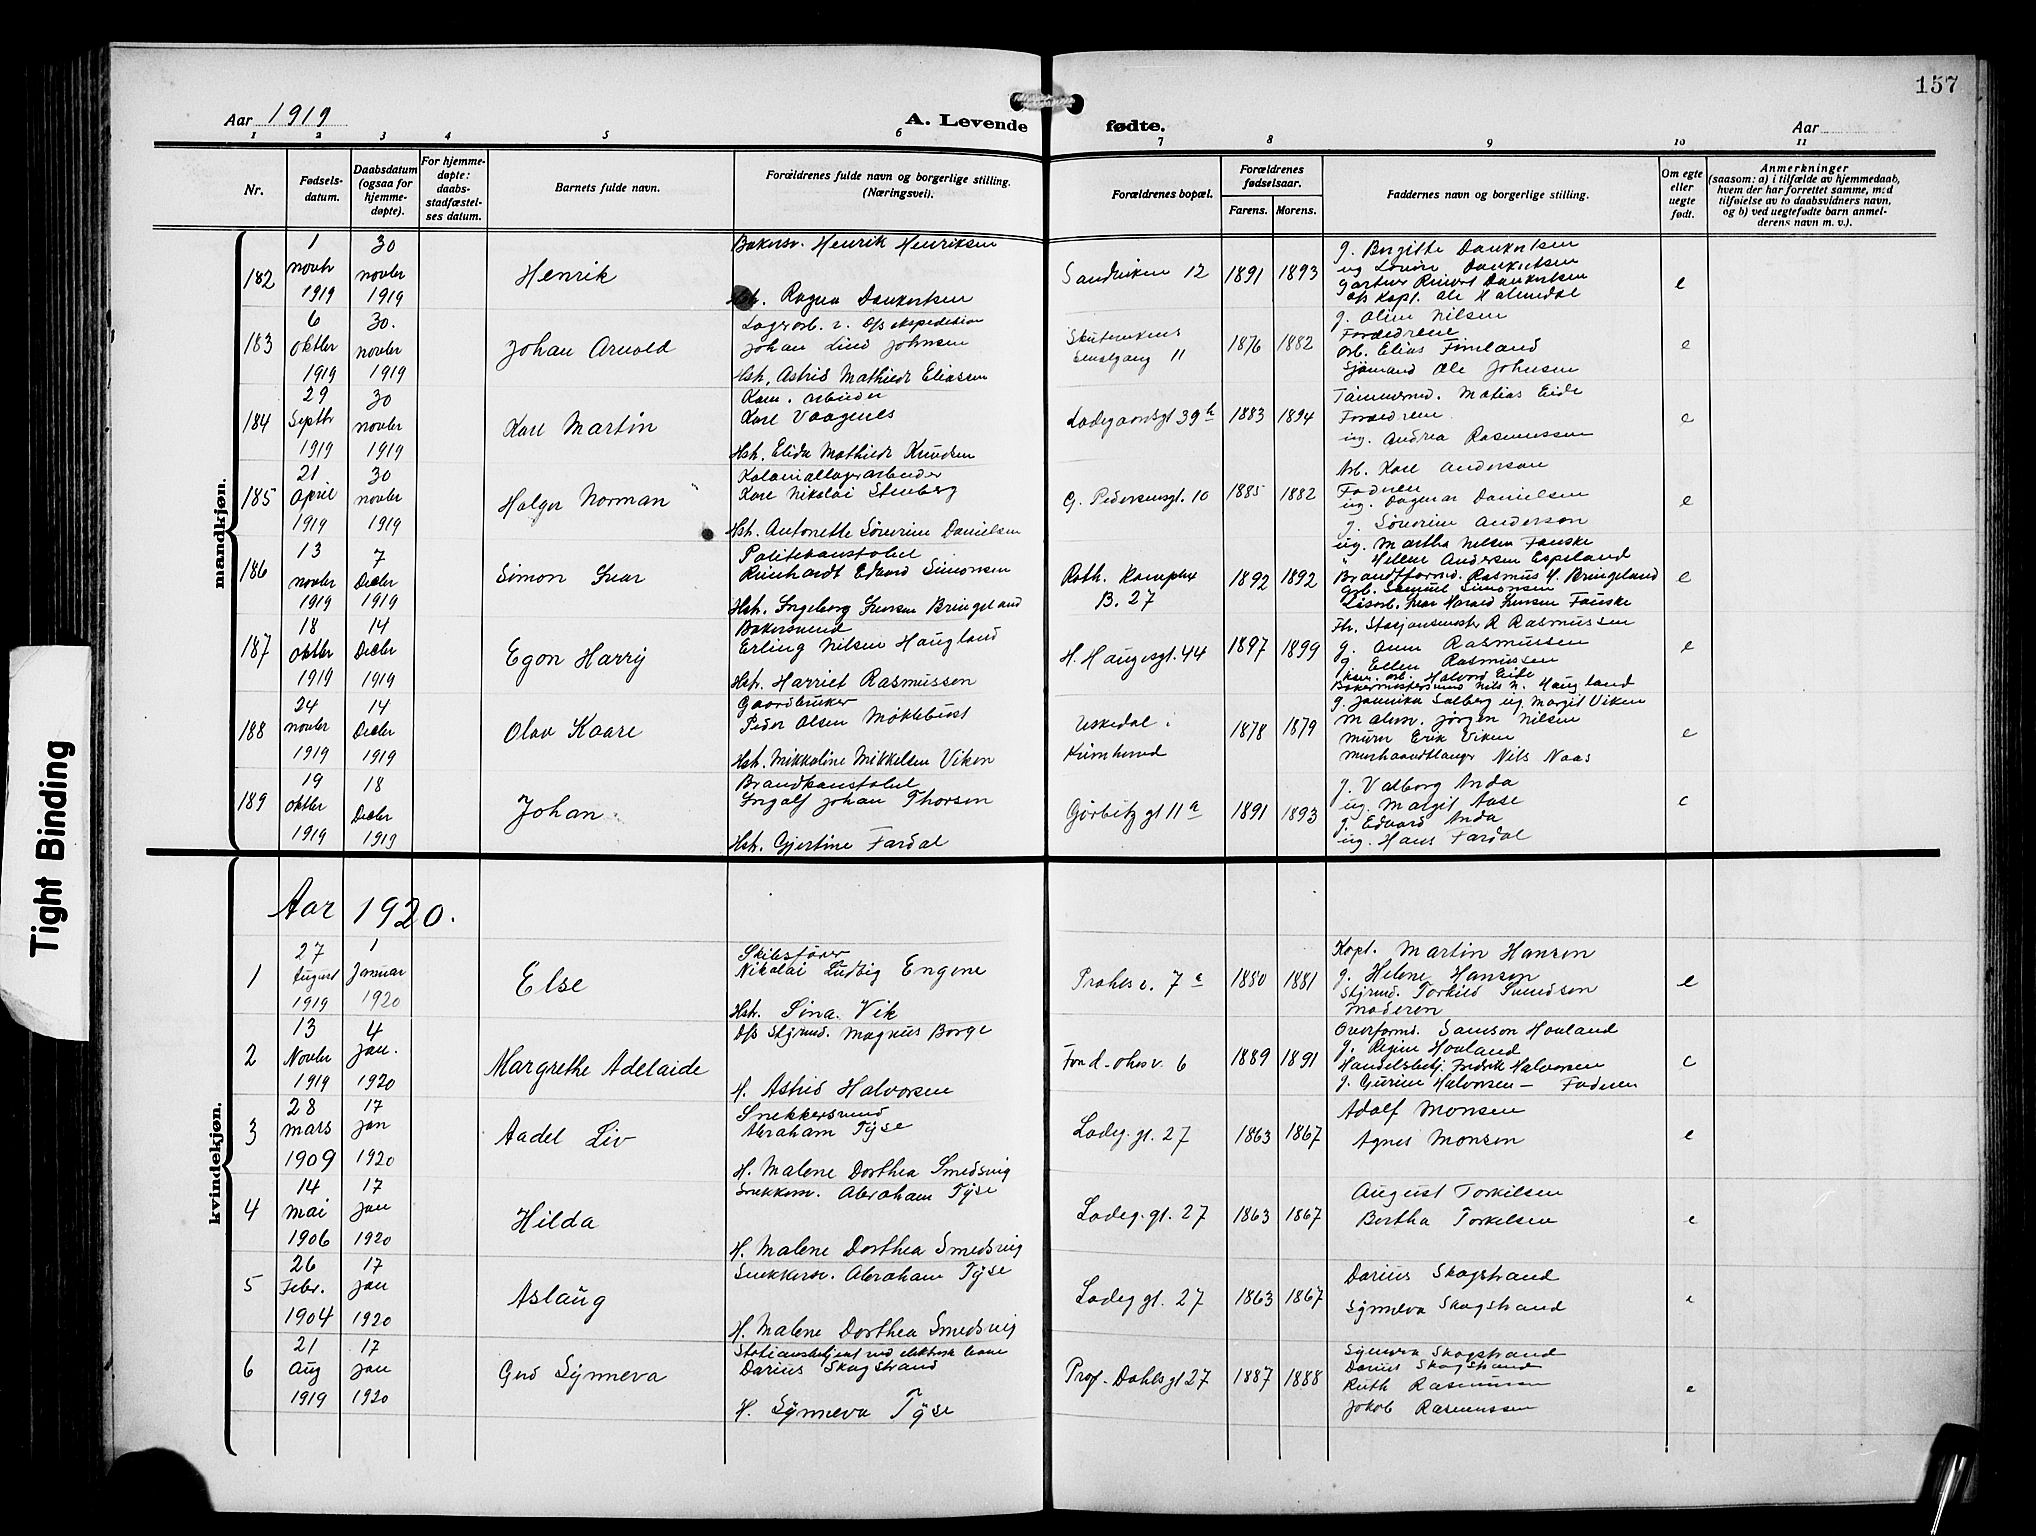 157
Aar 1919
A. Levende fødte.
Aar
1 2 3 4 5 6 7 8 9 10 11
Nr.
Fødsels-
datum.
Daabsdatum
(ogsaa for
hjemme-
døpte).
For hjemme-
døpte:
daabs-
stadfæstel-
ses datum.
Barnets fulde navn.
Forældrenes fulde navn og borgerlige stilling.
(Næringsvei).
Forældrenes bopæl.
Forældrenes
fødselsaar.
Farens. Morens.
Faddernes navn og borgerlige stilling.
Om egte
eller
uegte
født.
Anmerkninger
(saasom: a) i tilfælde av hjemmedaab,
hvem der har forrettet samme, med
tilføielse av to daabsvidners navn,
og b) ved uegtefødte barn anmel-
derens navn m. v.).
mandkjøn.
182
1
novbr
1919
30
novbr
1919
Henrik
Bakersv. Henrik Henriksen
Hst. Ragna Dankertsen
Sandviken 12
1891 1893
g. Borgitte Dankertsen
ug Lovise Dankertsen
Gartner Reinert Dankertsen
Ole Halmedal
e
183
6
oktbr
1919
30.
novbr
1919
Johan Arnold
Lagerarb. v. Dfs ekspedition
Johan Lind Johnsen
Hst. Astrid Mathilde Eliassen
Skutevikens
Smalgang 11
1876 1882
g. Oline Nilsen
Forældrene
arb. Elias Fineland
Sjømand Ole Johnsen
e
184
29
Septbr
1919
30
novbr
1919
Karl Martin
Kom. arbeider
Karl Vaagenes
Hst. Elida Mathilde Knudsen
Ladegaardsgt 39 b
1883 1894
Tømmermd. Matias Eide
Forældrene
ug. Andrea Rasmussen
e
185
21
April
1919
30
novbr
1919
Holger Norman
Koloniallagerarbeider
Karl Nikolai Stenberg
Hst. Antonette Søverine Danielsen
G. Pedersensgt. 10
1885 1882
Arb. Karl Anderson
Faderen
ug. Dagmar Danielsen
g. Søverine Anderson
e
186
13
novbr
1919
7
Decbr
1919
Simon Ivar
Politikonstabel
Reinhardt Edvard Simonsen
Hst. Ingeborg Jensen Bringeland
Roth. Komplex
B. 27
1892 1892
ug. Martha Nilsen Fauske
" Helene Andersen Espeland
Brandformd. Rasmus H. Bringeland
arb. Samuel Simonsen
Ivar Harald Jensen Fauske
e
187
18
oktbr
1919
14
Decbr
1919
Egon Harry
Bakersvend
Erling Nilsen Haugland
Hst. Harriet Rasmussen
H. Haugesgt. 44
1897 1899
Fh. Stasjonsmester R Rasmussen
g. Anna Rasmussen
g. Ellen Rasmussen
kom. arb. Halvord Eide
Bakermestersvend Nils N. Haugland
e
188
24
novbr
1919
14
Decbr
1919
Olav Kaare
Gaardbruker
Peder Olsen Møklebust
Hst. Mikkaline Mikkelsen Viken
Uskedal i
Kvinherred
1878 1879
g. Jannika Solberg ug Margit Viken
Malerm. Jørgen Nilsen
Murer Erik Viken
Murhaandtlanger Nils Naas
e
189
19
oktbr
1919
18
Decbr
1919
Johan
Brandkonstabel
Ingolf Johan Thorsen
Hst. Gjertine Fardal
Gørbitz gt 11 a
1891 1893
g. Valborg Anda
ug. Margit Aase
g. Edvard Anda
ug. Hans Fardal
e
Aar 1920.
kvindekjøn.
1
27
August
1919
1
Januar
1920
Else
Skibsfører
Nikolai Ludvig Engene
Hst. Sina Vik
Prahls v. 7 a
1880 1881
Kapt. Martin Hansen
g. Helene Hansen
Styrmd. Torkild Svendsen
Moderen
e
2
13
Novbr
1919
4
Jan.
1920
Margrethe Adelaide
Dfs Styrmd. Magnus Borge
H. Astrid Halvorsen
Fond. ohs v. 6
1889 1891
Overformd. Samson Hovland
g. Regine Hovland
Handelsbetj. Fredrik Halvorsen
g. Gurine Halvorsen — Faderen
e
3
28
mars
1909
17
Jan
1920
Aadel Liv
Snekkersvend
Abraham Tyse
H. Malene Dorthea Smedsvig
Ladeg. gt. 27
1863 1867
Adolf Monsen
Agnes Monsen
e
4
14
Mai
1906
17
Jan
1920
Hilda
Snekkersv. Abraham Tyse
H. Malene Dorthea Smedsvig
Ladeg. gt. 27
1863 1867
August Torkilsen
Bertha Torkelsen
e
5
26
Febr.
1904
17
Jan
1920
Aslaug
Snekkersv. Abraham Tyse
H. Malene Dorthea Smedsvig
Ladeg gt. 27
1863 1867
Darius Skogstrand
Synneva Skogstrand
e
6
21
Aug
1919
17
Jan
1920
Gud Synneva
Stationsbetjent ved elektrisk bane
Darius Skogstrand
H. Synneva Tyse
Prof. Dahlsgt 27
1887 1888
Synneva Skogstrand
Darius Skogstrand
Ruth Rasmussen
Jakob Rasmussen
e
Tight Binding